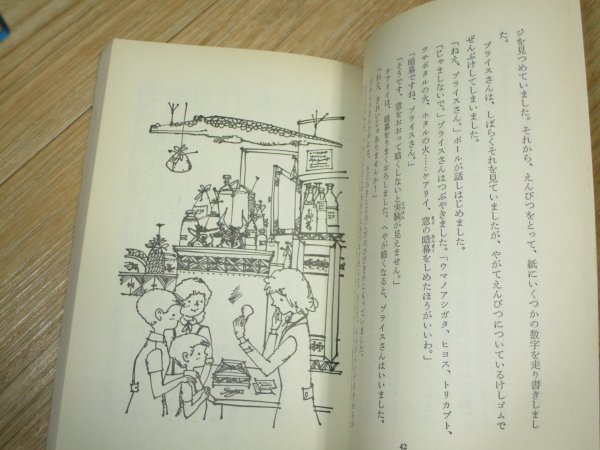 ジを見つめていました。それから、えんぴつをとって、紙にいくつかの数字を走り書きしまし
た。
プライスさんは、しばらくそれを見ていましたが、やがてえんぴつについているけしゴムで
ぜんぶけしてしまいました。
「ねえ、プライスさん。」ポールが話しはじめました。
「じゃましないで。」プライスさんはつぶやきました。「ウマノアシガタ、ヒヨス、トリカブト、
ツチボタルの火、ホタルの火……ケアリイ、窓の暗幕をしめたほうがいいわ。」
「暗幕ですね、プライスさん。」
「そうです、窓をおおって暗くしないと実験が見えません。」
ケアリイは、暗幕をうまくおろしました。へやが暗くなると、プライスさんはいいました。
42